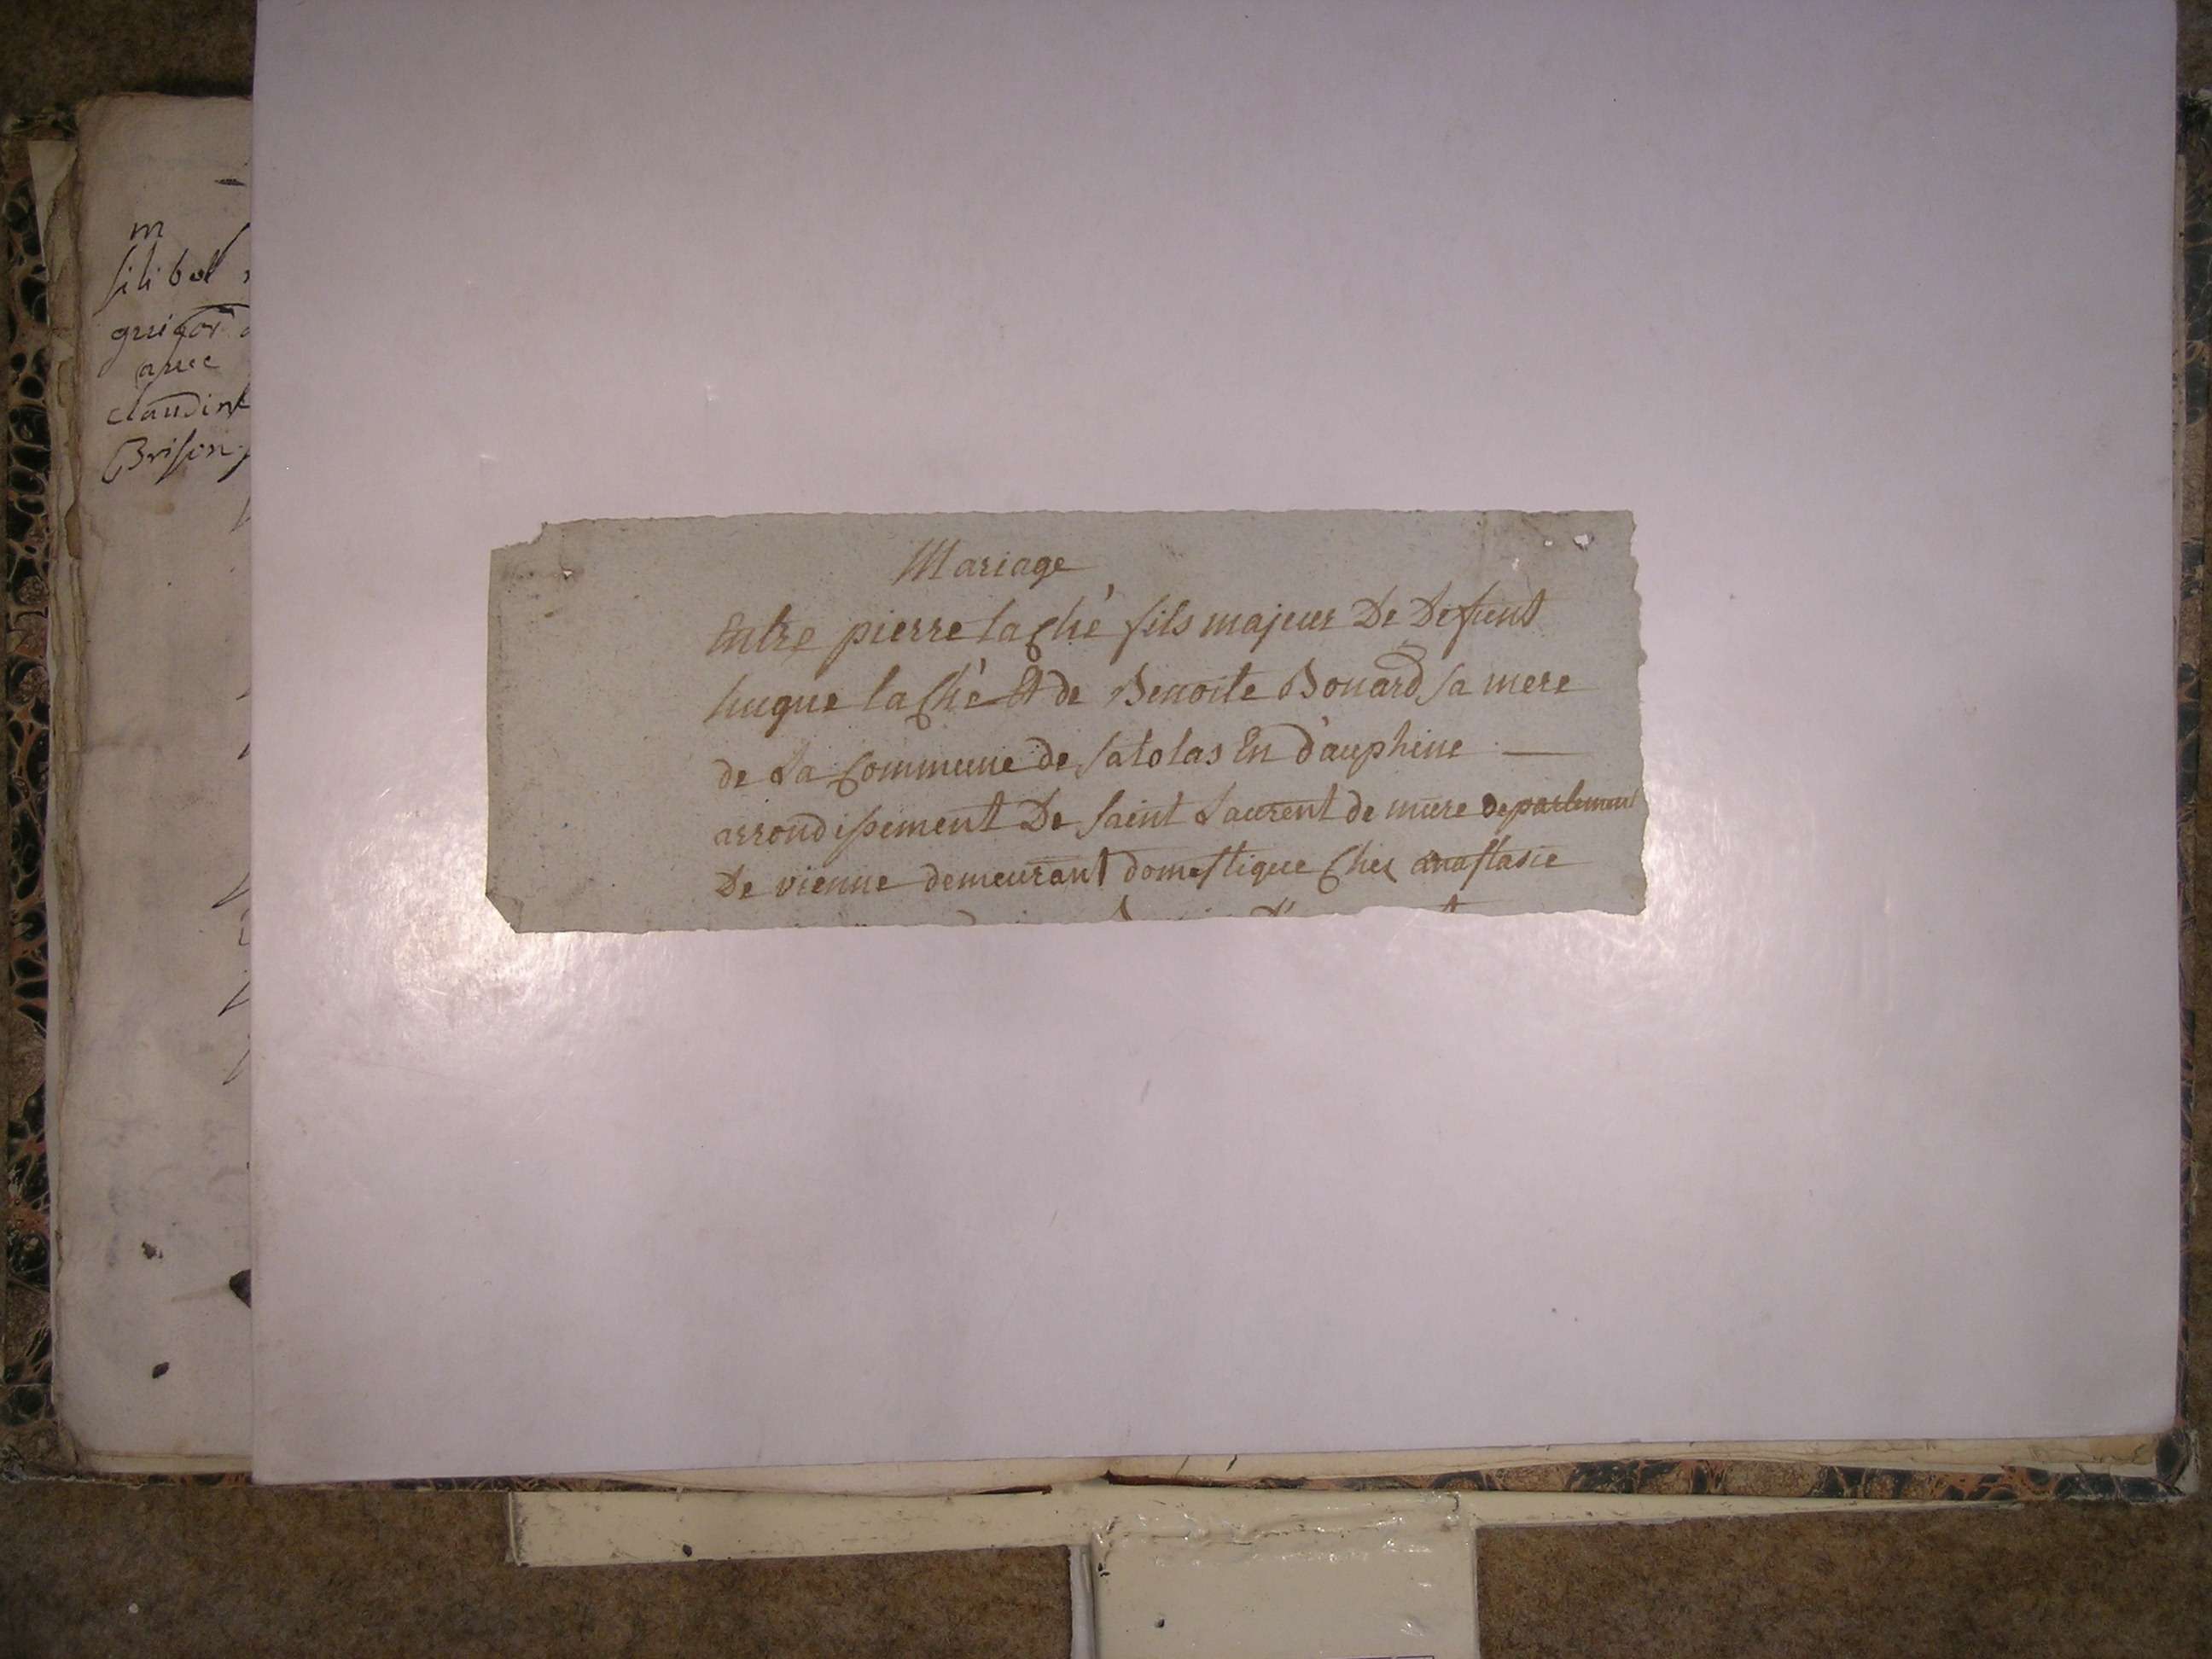 m
filibol
guigor
avec
claudine
Brison
Mariage
Entre pierre laChé fils majeur De Defunt
hugue laChé Et de Benoite Bouard sa mere
de La Commune de Satolas En dauphine
arrondissement De Saint Laurent de mure departement
De vienne demeurant domestique Chez anastasie